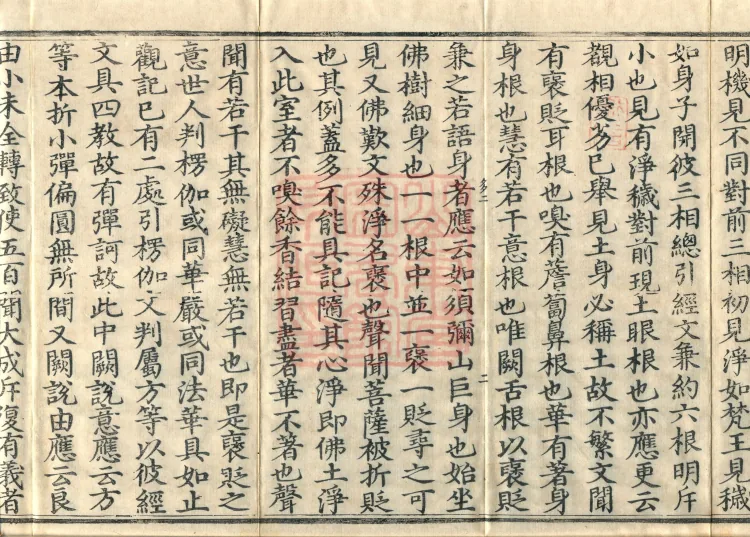 明機見不同對前三相初見淨如梵王見穢
如身子開彼三相總引經文兼約六根明斥
小也見有淨穢對前現土眼根也亦應更云
觀相優劣已舉見土身必稱土故不繁文聞
有褒貶耳根也嗅有薝蔔鼻根也華有著身
身根也慧有若干意根也唯闕舌根以褒貶
兼之若語身者應云如須彌山巨身也始坐
佛樹細身也一一根中並一褒一貶尋之可
見又佛歎文殊淨名褒也聲聞菩薩被折貶
也其例蓋多不能具記隨其心淨即佛土淨
入此室者不嗅餘香結習盡者華不著也聲
聞有若干其無礙慧無若干也即是褒貶之
意世人判楞伽或同華嚴或同法華具如止
觀記已有二處引楞伽文判屬方等以彼經
文具四教故有彈訶故此中闕說意應云方
等本折小彈偏圓無所間又闕說由應云良
由小未全轉致使五百聞大成斥復有義者